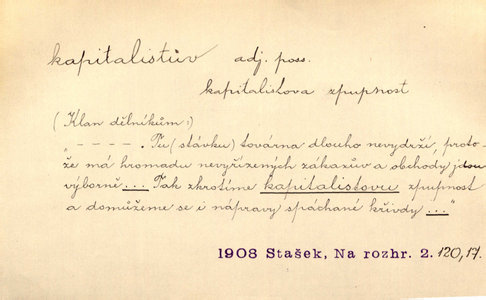 kapitalistův adj. poss.
kapitalistova zpupnost
(Klan dělníkům:)
„ - - - - . Tu (stávku) továrna dlouho nevydrží, proto-
že má hromadu nevyřízených zákazův a obchody jdou
výborně ... Tak zkrotíme kapitalistovu zpupnost
a domůžeme se i nápravy spáchané křivdy ..."
1908 Stašek, Na rozhr. 2. 120, 17.